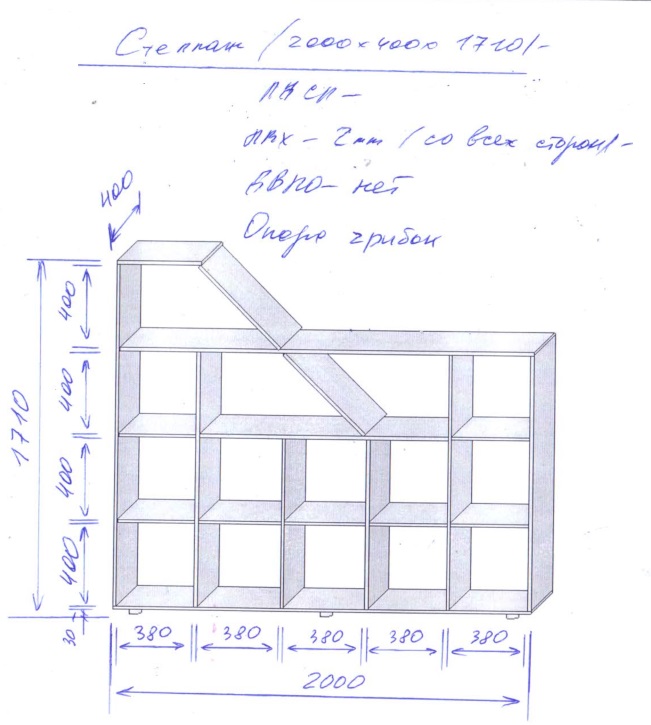 Стеллаж /2000×400×1710/-
ЛДСП -
ПВХ - 2мм /со всех сторон/-
ДВПО - нет
Опора грибок
400
400
400
400
400
1710
30
380 380 380 380 380
2000